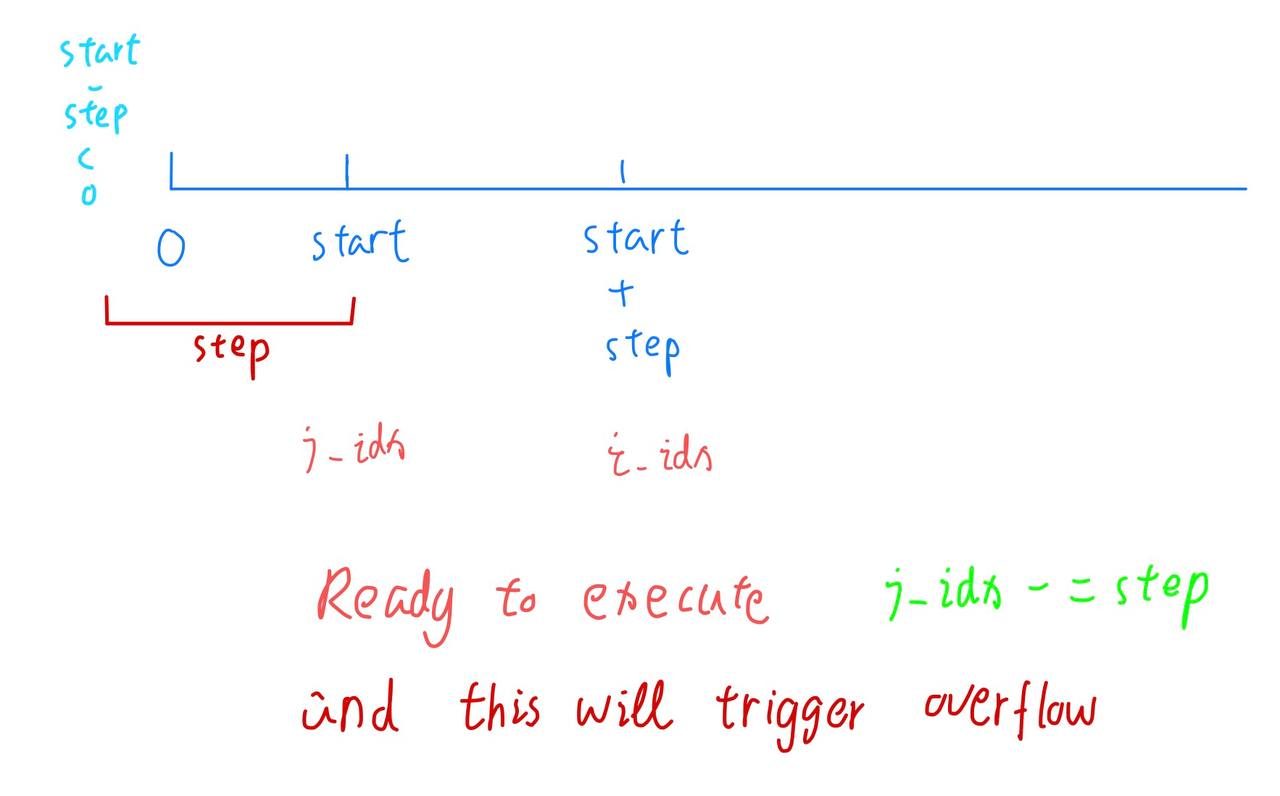 start
-
step
<
0
0 start start
+
step
step
j_idx i_idx
Ready to execute j_idx -= step
and this will trigger overflow